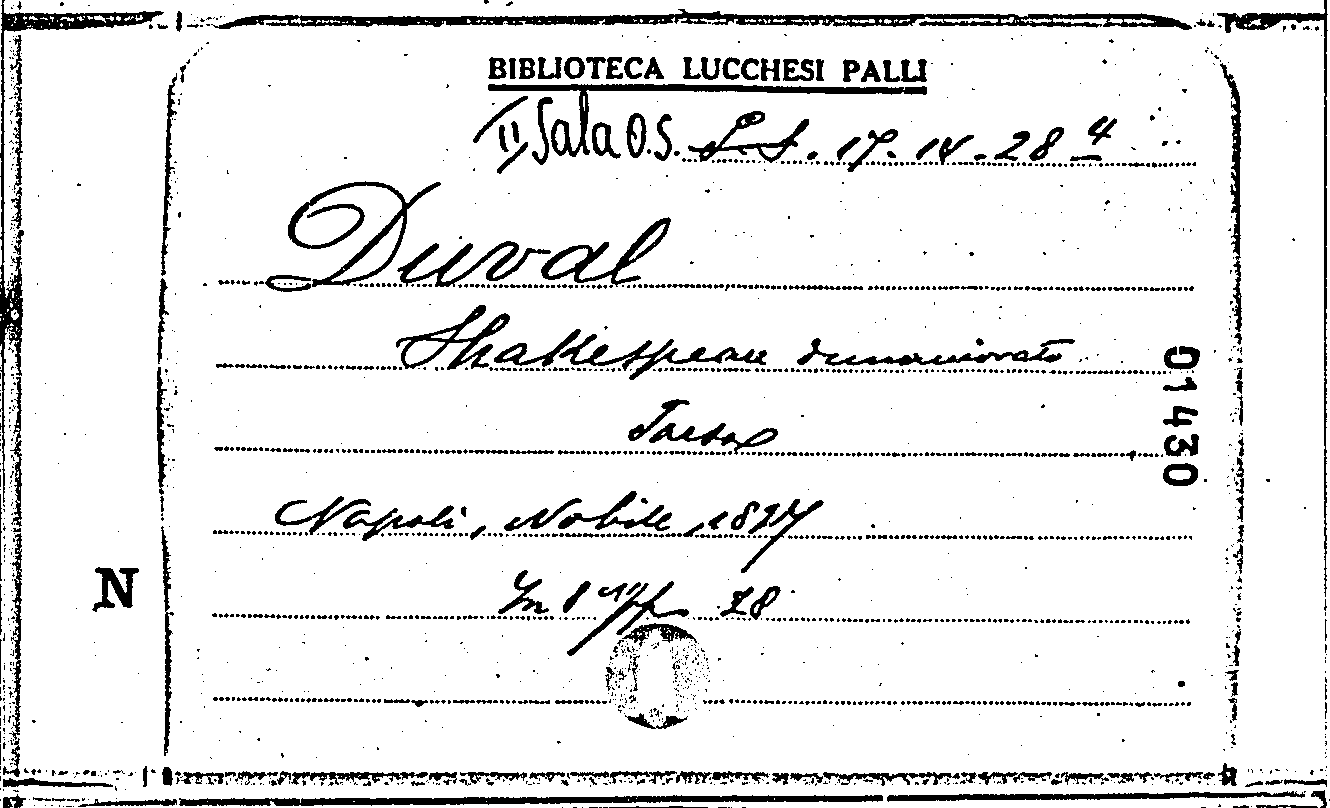 BIBLIOTECA LUCCHESI PALLI
II Sala O.S. L.S. 17. 14. 28 4
Duval
Shakespeare innamorato
Farsa
Napoli, Nobile, 1827
In 8° pp. 28
01430
N